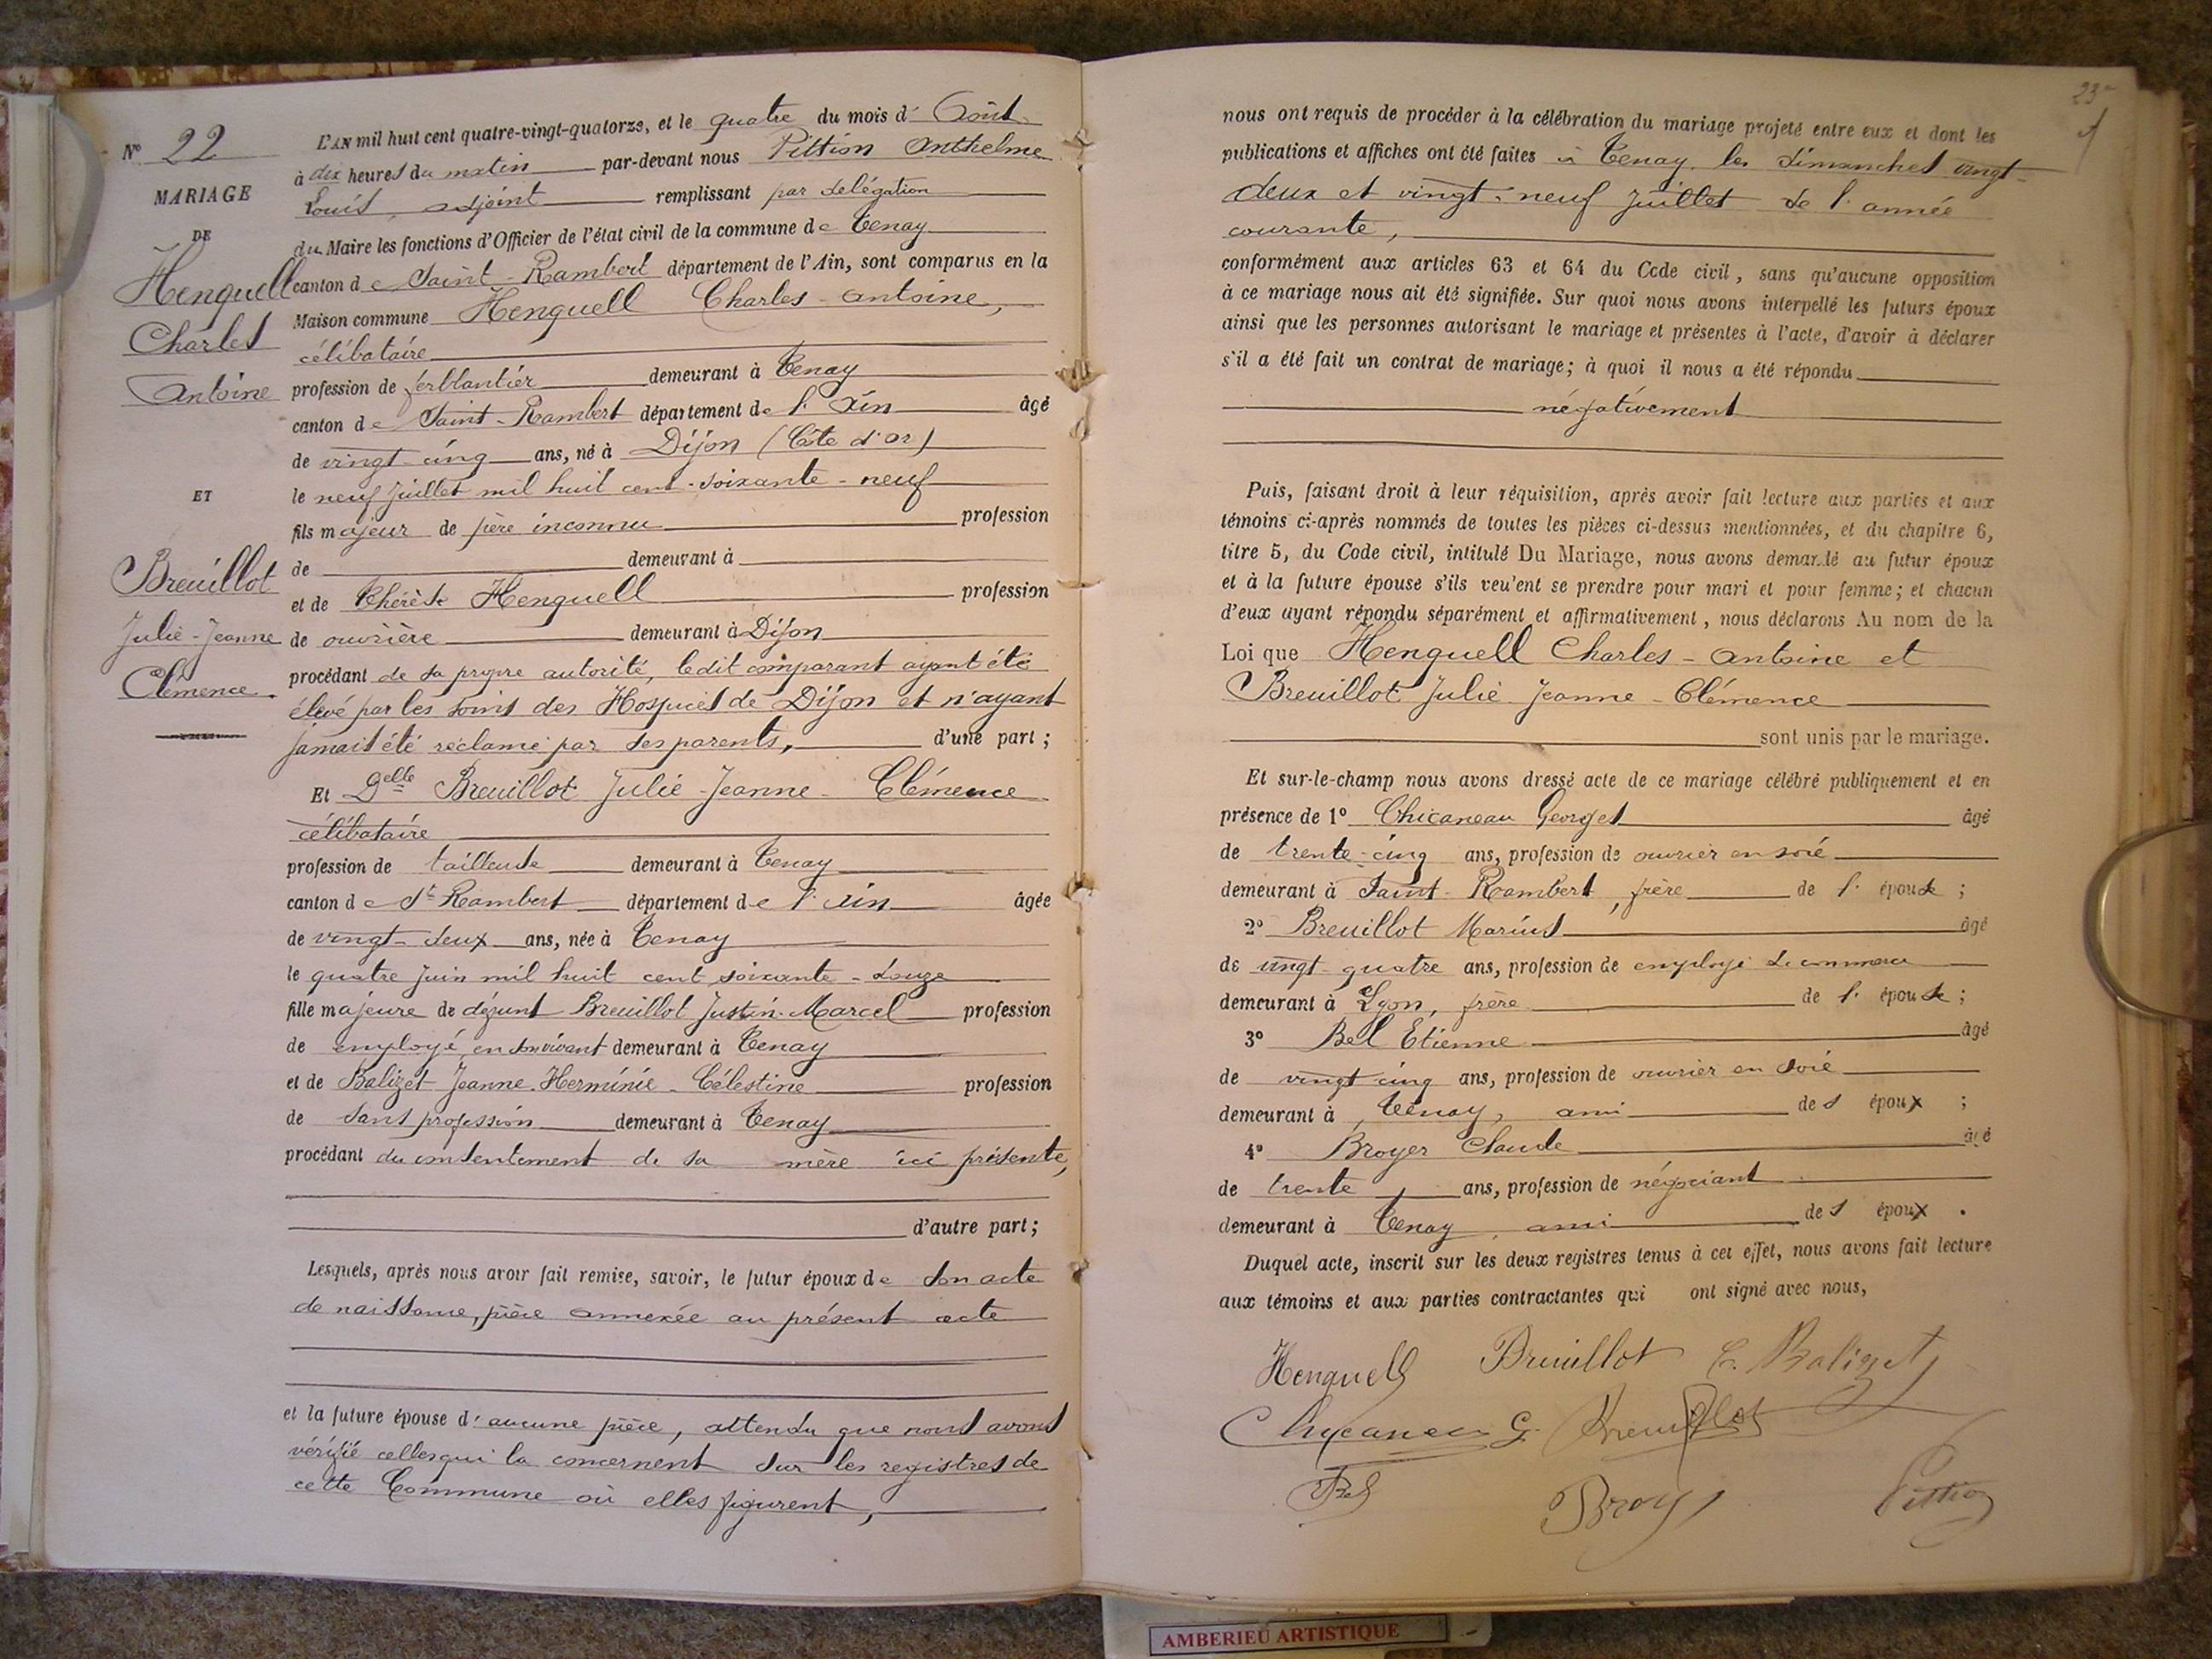 N° 22
MARIAGE
DE
Henquell
Charles
Antoine
ET
Breuillot
Julie-Jeanne
Clémence
L'AN mil huit cent quatre-vingt-quatorze, et le quatre du mois d'Août
à dix heures du matin par-devant nous Pittion Anthelme
Louis, adjoint remplissant par délégation
du Maire les fonctions d'Officier de l'état civil de la commune de Tenay
canton de Saint-Rambert département de l'Ain, sont comparus en la
Maison commune Henquell Charles-Antoine,
célibataire
profession de ferblantier demeurant à Tenay
canton de Saint-Rambert département de l'Ain âgé
de vingt-cinq ans, né à Dijon (Côte d'Or)
le neuf juillet mil huit cent-soixante-neuf
fils majeur de père inconnu profession
de demeurant à
et de Thérèse Henquell profession
de ouvrière demeurant à Dijon
procédant de sa propre autorité, ledit comparant ayant été
élevé par les soins des Hospices de Dijon et n'ayant
jamais été réclamé par ses parents, d'une part ;
Et Delle Breuillot Julie-Jeanne-Clémence
célibataire
profession de tailleuse demeurant à Tenay
canton de St Rambert département de l'Ain âgée
de vingt-deux ans, née à Tenay
le quatre juin mil huit cent soixante-douze
fille majeure de défunt Breuillot Justin-Marcel profession
de employé, en son vivant demeurant à Tenay
et de Balizet Jeanne-Herminie-Célestine profession
de sans profession demeurant à Tenay
procédant du consentement de sa mère ici présente,
d'autre part ;
Lesquels, après nous avoir fait remise, savoir, le futur époux de son acte
de naissance, pièce annexée au présent acte
et la future épouse d'aucune pièce, attendu que nous avons
vérifié celles qui la concernent sur les registres de
cette Commune où elles figurent,
23
nous ont requis de procéder à la célébration du mariage projeté entre eux et dont les
publications et affiches ont été faites à Tenay, les dimanches vingt-
deux et vingt-neuf juillet de l'année
courante,
conformément aux articles 63 et 64 du Code civil, sans qu'aucune opposition
à ce mariage nous ait été signifiée. Sur quoi nous avons interpellé les futurs époux
ainsi que les personnes autorisant le mariage et présentes à l'acte, d'avoir à déclarer
s'il a été fait un contrat de mariage ; à quoi il nous a été répondu
négativement
Puis, faisant droit à leur réquisition, après avoir fait lecture aux parties et aux
témoins ci-après nommés de toutes les pièces ci-dessus mentionnées, et du chapitre 6,
titre 5, du Code civil, intitulé Du Mariage, nous avons demandé au futur époux
et à la future épouse s'ils veulent se prendre pour mari et pour femme ; et chacun
d'eux ayant répondu séparément et affirmativement, nous déclarons Au nom de la
Loi que Henquell Charles-Antoine et
Breuillot Julie-Jeanne-Clémence
sont unis par le mariage.
Et sur-le-champ nous avons dressé acte de ce mariage célébré publiquement et en
présence de 1° Chicaneau Georges âgé
de trente-cinq ans, profession de ouvrier en soie
demeurant à Saint-Rambert, frère de l'épouse ;
2° Breuillot Marius âgé
de vingt-quatre ans, profession de employé de commerce
demeurant à Lyon, frère de l'épouse ;
3° Bel Etienne âgé
de vingt cinq ans, profession de ouvrier en soie
demeurant à Tenay, ami des époux ;
4° Broyer Claude âgé
de trente ans, profession de négociant
demeurant à Tenay, ami des époux .
Duquel acte, inscrit sur les deux registres tenus à cet effet, nous avons fait lecture
aux témoins et aux parties contractantes qui ont signé avec nous,
Henquell Breuillot C. Balizet
Chicaneau G. Breuillot
Bel Broyer Pittion
AMBERIEU ARTISTIQUE